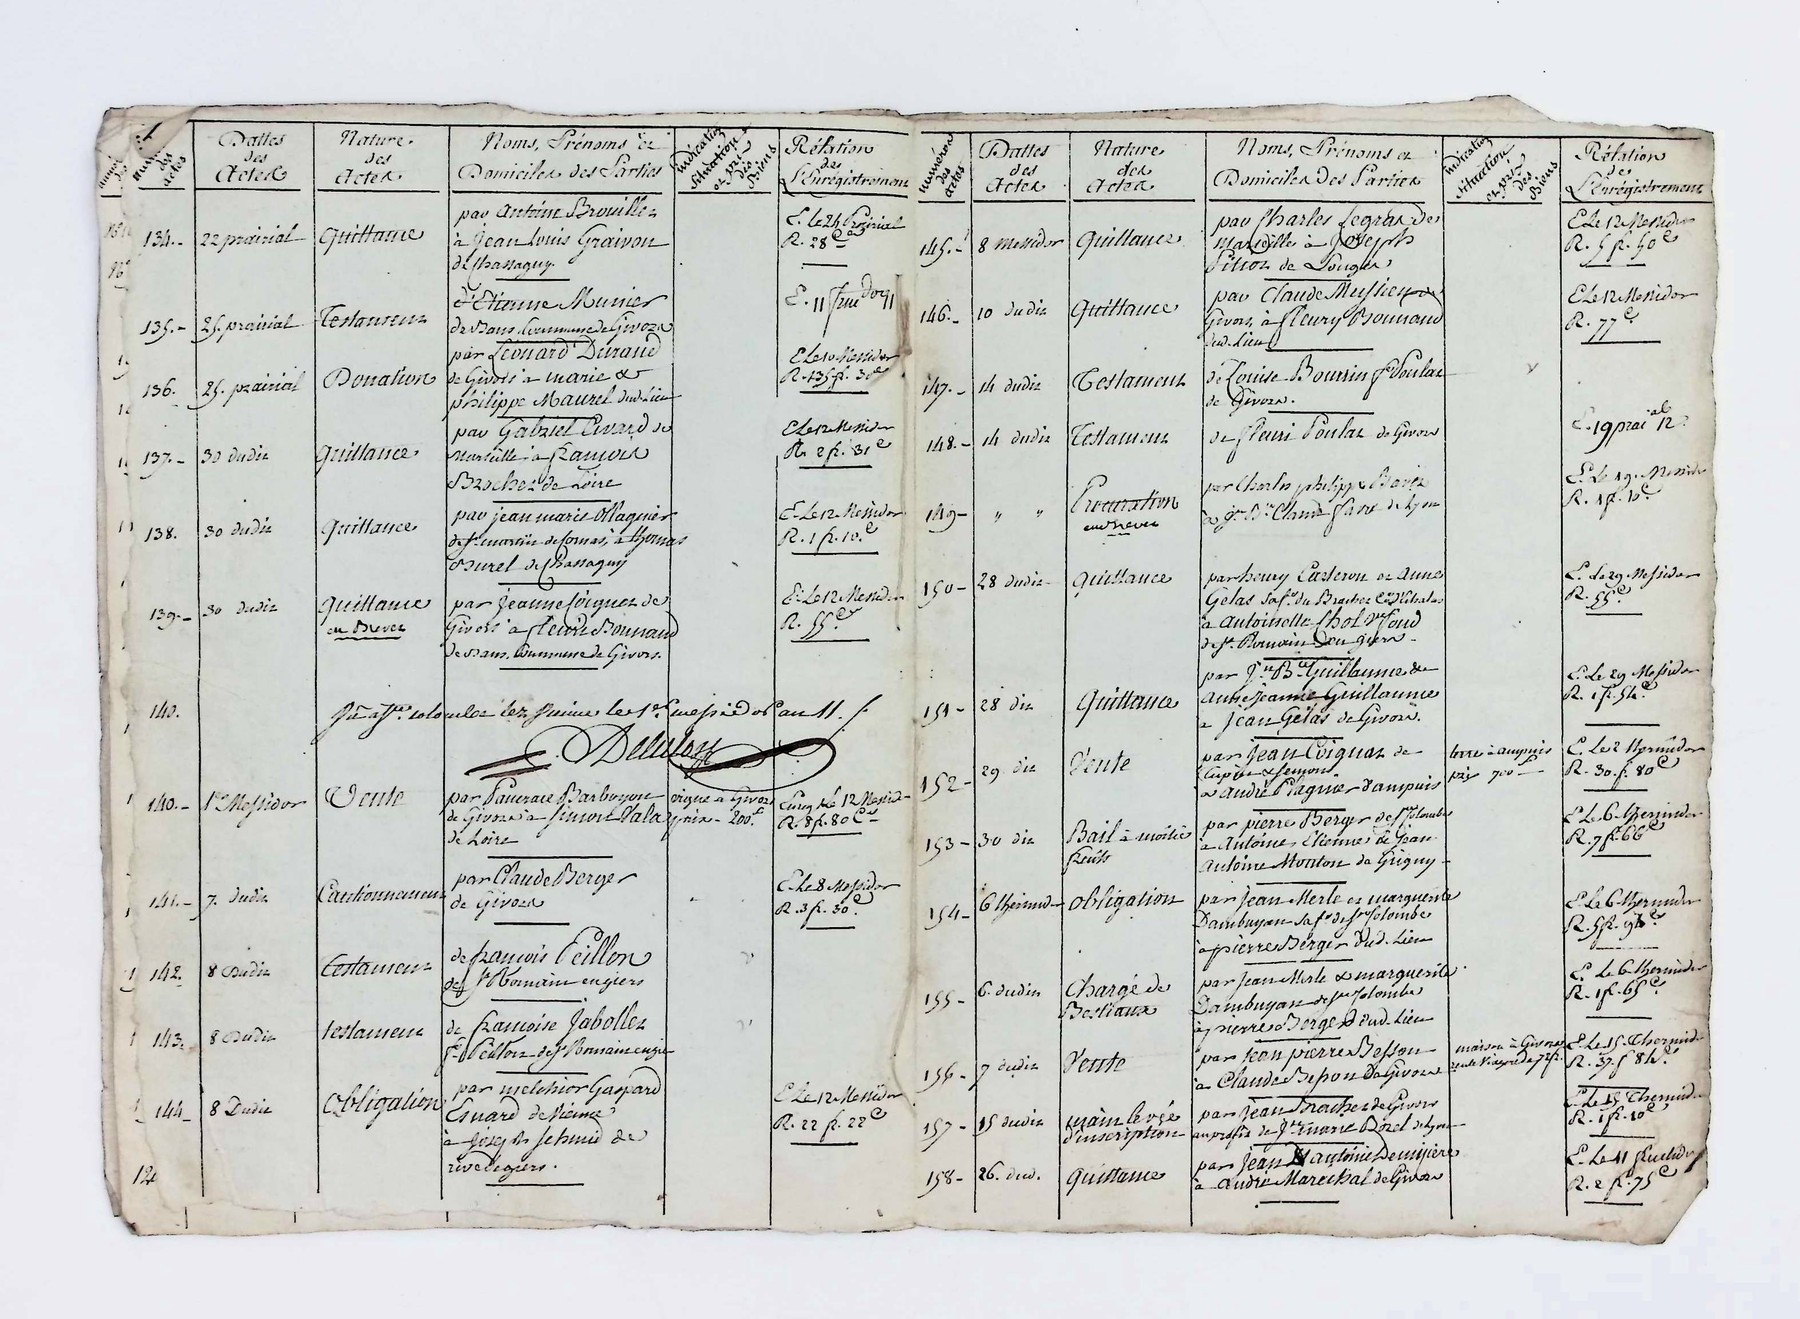 numéros des actes
Dattes des Actes
Nature des Actes
Noms, Prénoms et Domiciles des Parties
Indication situation et prix des Biens
Rélation de L'Enrégistrement
134.- 22 prairial Quittance
par Antoine Brouillet
à Jean Louis Graivon
de Chassagny
E. Le 24 Prairial
R. 28 c
135.- 25. prairial Testament
d'Etienne Munier
de Bans Commune de Givors
E. 11
136. 25. prairial Donation
par Léonard Durand
de Givors à marie &
philippe Maurel dud. Lieu
E Le 10 Messidor
R. 135 f. 30 c
137.- 30 dudit Quittance
par Gabriel
Marseille à francois
Brochet de Loire
E Le 12 Messidor
R. 2 f. 31 c
138. 30 dudit Quittance
par jean marie Ollagnier
de St. martin de Cornas, à thomas
Burel de Chassagny
E. Le 12 Messidor
R. 1 f. 10 c
139.- 30 dudit Quittance
en Brevet
par Jeanne Coignet de
Givors à fleurie Bonnand
de Bans, Commune de Givors.
E. Le 12 Messidor
R. 55 c
140. le 1er messidor an 11.
140.- 1er Messidor Vente
par Pancrace Barboyon
de Givors à Simon Pala
de Loire
vigne à Givors
prix - 200 f
Enreg. Le 12 Messid.
R. 8 f. 80 c
141.- 7. dudit Cautionnement
par Claude Berger
de Givors
E. Le 8 Messidor
R. 3 f. 30 c
142. 8 Dudit testament
de francois Peillon
de St. Romain en giers
143. 8 Dudit testament
de francoise Jabollet
fe. Peillon de St. Romain en gie
144 8 Dudit Obligation
par melchior Gaspard
Enard de Vienne
à Joseph Schmid de
rive de giers.
E Le 12 Messidor
R. 22 f. 22 c
124
numéros des actes
Dattes des Actes
Nature des Actes
Noms, Prénoms et Domiciles des Parties
Indication situation et prix des Biens
Rélation de L'Enrégistrement
145.- 8 Messidor Quittance
par Charles Legras de
Marseille à Joseph
Pition de Longes
E Le 12 Messidor
R. 5 f. 50 c
146.- 10 dudit Quittance
par Claude Meyssien de
Givors, à fleury Bonnand
dud. Lieu
E Le 12 Messidor
R. 77 c
147.- 14 dudit Testament
de Louise Bourrin fe. Poulat
de Givors.
148.- 14 dudit Testament
de fleuri Poulat de Givors
E. 19 prai.al 12
149- " " Procuration
en Brevet
par Charles philippe
à Jn. Bte. Claude favre de Lyon
E. Le 19. Messidor
R. 1 f. 10 c
150- 28 dudit Quittance
par henry Carteron et anne
Gelas sa fe. du
à antoinette Chol
de St. Romain en giers -
E. Le 29 Messidor
R. 55 c
151- 28 dit Quittance
par Jn. Bte. Guillaume &
autre jeanne Guillaume
à Jean Gelas de Givors.
E. Le 29 Messidor
R. 1 f. 54 c
152- 29 dit Vente
par Jean Coignat de
& Semons
à André Plagnier d'ampuis
terre à ampuis
prix 700 f
E. Le 2 thermidor
R. 30. f. 80 c
153- 30 dit Bail à moitié
fruits
par pierre Berger de Ste. Colombe
à Antoine, Etienne & Jean
Antoine Mouton de Grigny -
E Le 6 thermidor
R. 7 f. 66 c
154- 6 thermidor Obligation
par Jean Merle et marguerite
Dambuyan sa fe. de Ste. Colombe
à pierre Berger dud. Lieu
E Le 6 thermidor
155- 6. dudit Chargé de
Bestiaux
par Jean Merle & marguerite
Dambuyan de Ste. Colombe
à pierre Berger dud. Lieu
E. Le 6 thermidor
R. 1 f. 65 c
156- 7 dudit Vente
par Jean pierre Besson
à Claude Besson de Givors
maison à Givors
E Le 15. Thermidor
R. 37. f 84 c
157- 15 dudit main levée
d'inscription
par Jean Brachet de Givors
au profit de Jn. marie de Lyon
E. Le 15 Thermidor
R. 1 f. 10 c
158- 26. dud. Quittance
par Jean antoine Demijiere
à André Marechal de Givors
E. Le 11 fructidor
R. 2 f. 75 c